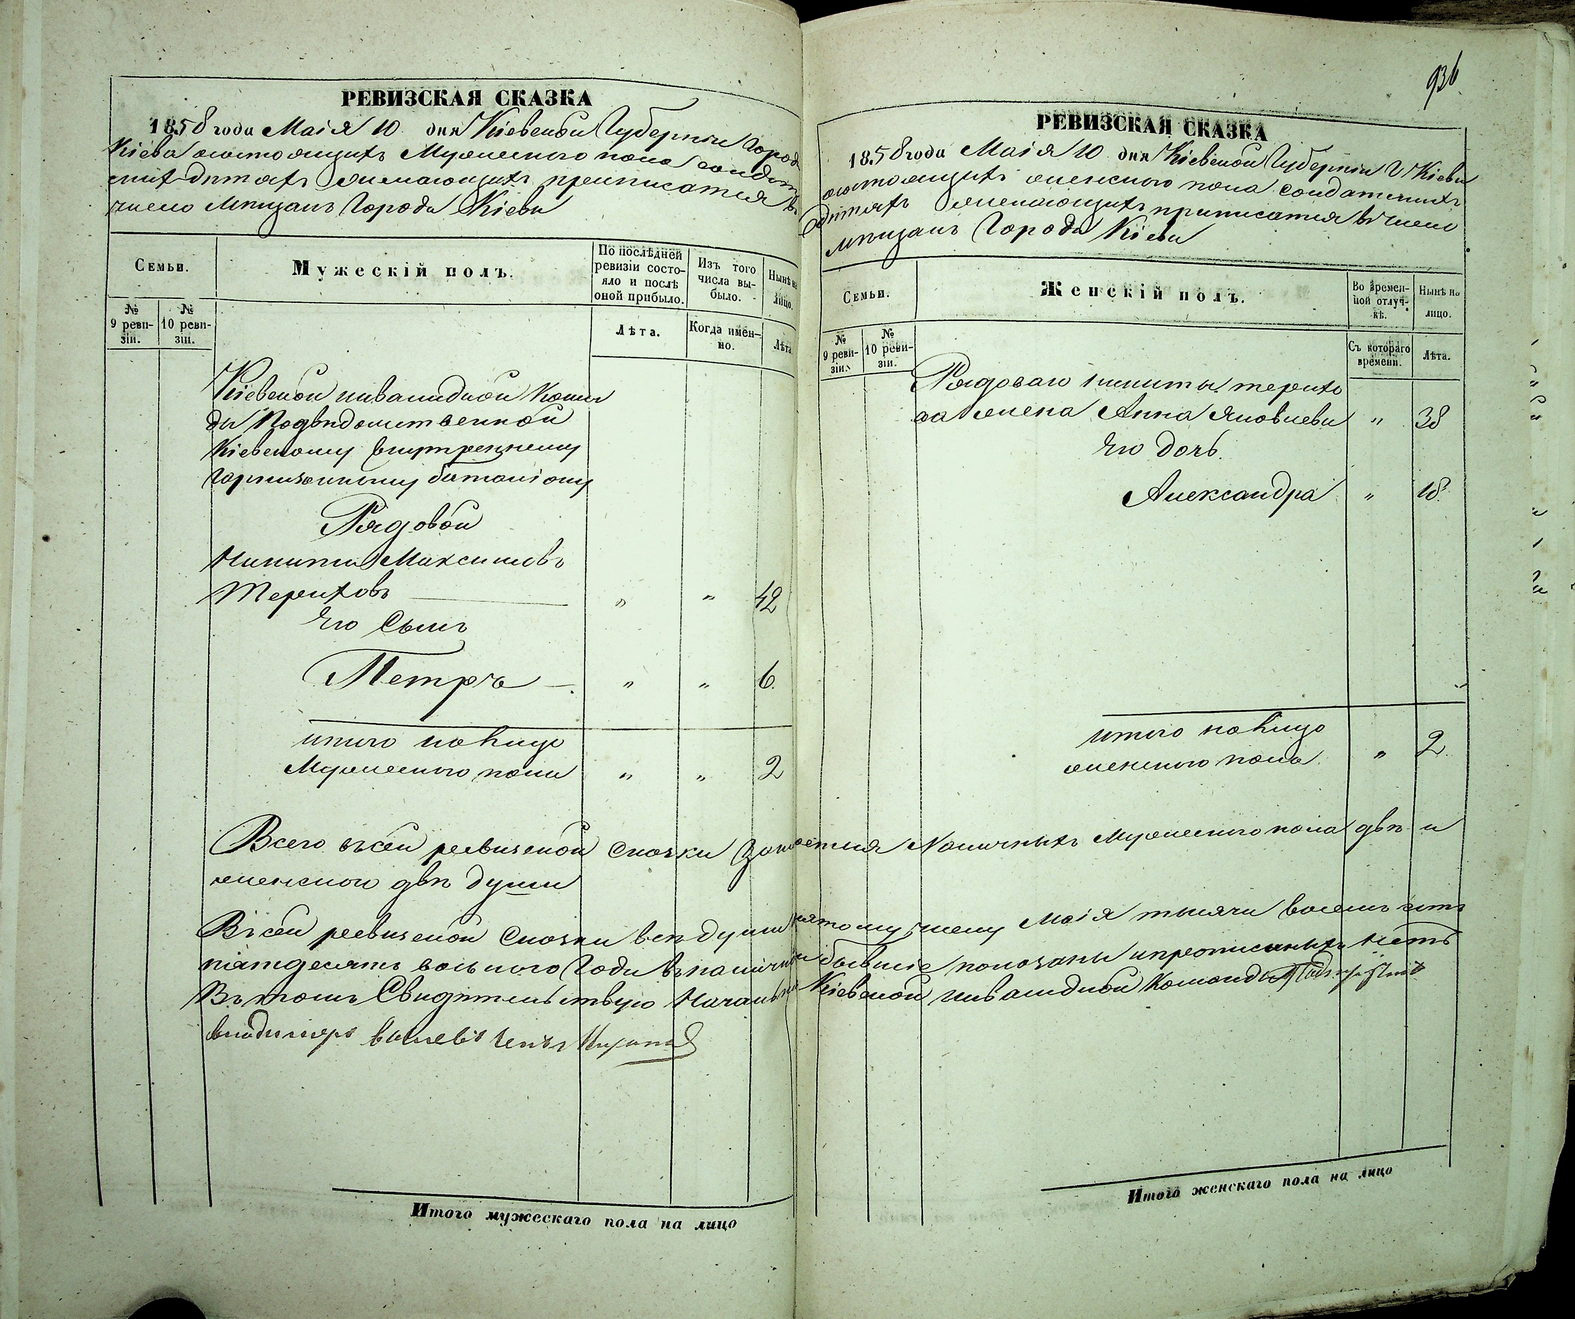 РЕВИЗСКАЯ СКАЗКА
1858 года Маія 10 дня Кіевской Губерніи Города
Кіева состоящихъ Мужескаго пола солдат
скихъ дѣтяхъ желающихъ преписатся въ
число мѣщанъ Города Кіева
Семьи.
Мужескій полъ.
По послѣдней ревизіи состояло и послѣ оной прибыло.
Изъ того числа выбыло.
Нынѣ на лицо.
№ 9 ревизіи.
№ 10 ревизіи.
Лѣта.
Когда именно.
Лѣта
Кіевской инвалидной Коман
ды Подвѣдомственной
Кіевскому внутреннему
Гарнизонному баталіону
Рядовой
Никита Максимовъ
Териховъ " " 42
Его Сынъ
Петръ " " 6
итого на Лицо
Мужескаго пола " " 2
Итого мужескаго пола на лицо
936
РЕВИЗСКАЯ СКАЗКА
1858 года Маія 10 дня Кіевской Губерніи Г Кіева
состоящихъ женскаго пола солдатскихъ
дѣтяхъ желающихъ приписатся въ число
мѣщанъ Города Кіева
Семьи.
Женскій полъ.
Во временной отлучкѣ.
Нынѣ на лицо.
№ 9 ревизіи.
№ 10 ревизіи.
Съ котораго времени.
Лѣта.
Рядоваго Никиты терихо
ва жена Анна Яковлева " 38
Его дочь
Александра " 18
итого на Лицо
женскаго пола " 2
Всего въ сей ревизской сказки наличныхъ Мужескаго пола двѣ и
женскаго двѣ души
Въ сей ревизской сказки всѣ души пятому числу Маія тысяча восемь сотъ
пятдесятъ восьмого Года въ наличи бывшіе показаны и прописныхъ нѣтъ
Въ томъ Свидѣтельствую Началь Кіевской инвалидной Команды
владимиръ
Итого женскаго пола на лицо